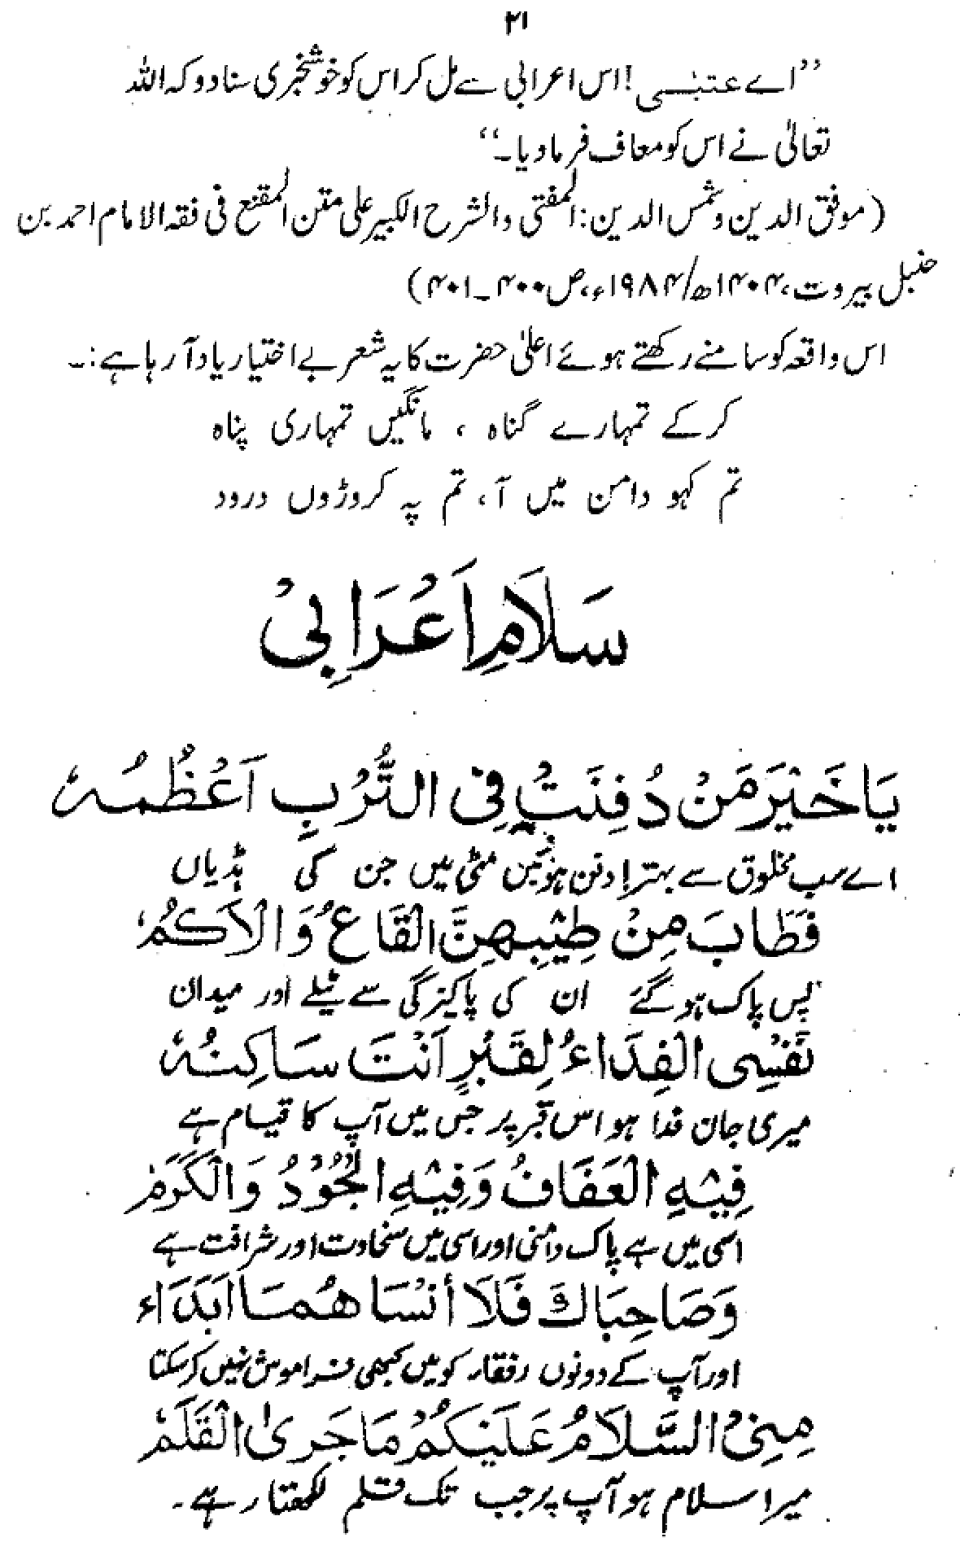 ۲۱
’’اے عتبٰی! اس اعرابی سے مل کر اس کو خوشخبری سنا دو کہ اللہ
تعالیٰ نے اس کو معاف فرما دیا۔‘‘
(موفق الدین وشمس الدین: المفتی والشرح الکبیر علی متن المقنع فی فقہ الامام احمد بن
حنبل بیروت، ۱۴۰۴ھ/۱۹۸۴ء، ص ۴۰۰۔۴۰۱)
اس واقعہ کو سامنے رکھتے ہوئے اعلیٰ حضرت کا یہ شعر بے اختیار یاد آ رہا ہے:۔
کر کے تمہارے گناہ ، مانگیں تمہاری پناہ
تم کہو دامن میں آ، تم پہ کروڑوں درود
سَلَامِ اَعْرَابِیْ
یَا خَیْرَ مَنْ دُفِنَتْ فِی التُّرْبِ اَعْظُمُہٗ
اے سب مخلوق سے بہتر! دفن ہوئیں مٹی میں جن کی ہڈیاں
فَطَابَ مِنْ طِیْبِھِنَّ الْقَاعُ وَالْاَکَمُ
پس پاک ہو گئے ان کی پاکیزگی سے ٹیلے اور میدان
نَفْسِی الْفِدَاءُ لِقَبْرٍ اَنْتَ سَاکِنُہٗ
میری جان فدا ہو اس قبر پر جس میں آپ کا قیام ہے
فِیْہِ الْعَفَافُ وَفِیْہِ الْجُوْدُ وَالْکَرَمُ
اسی میں ہے پاک دامنی اور اسی میں سخاوت اور شرافت ہے
وَصَاحِبَاکَ فَلَا أنْسَاھُمَا اَبَدَاء
اور آپ کے دونوں رفقاء کو میں کبھی فراموش نہیں کر سکتا
مِنِّیْ السَّلَامُ عَلَیْکُمْ مَا جَرَیٰ الْقَلَمُ
میرا سلام ہو آپ پر جب تک قلم لکھتا رہے۔